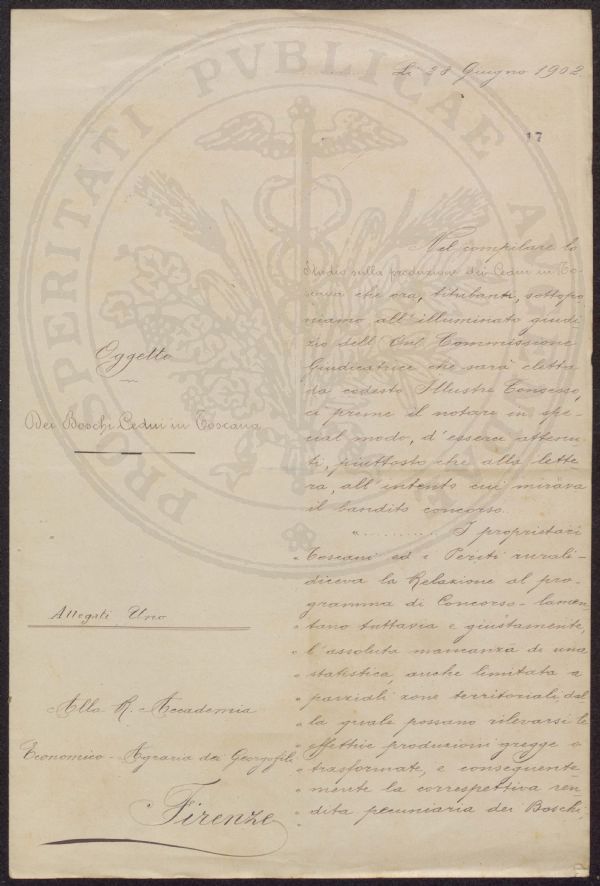 Li 28 Giugno 1902
17
PROSPERITATI PVBLICAE
Oggetto
Dei Boschi Cedui in Toscana
Allegati Uno
Alla R. Accademia
Economico-Agraria dei Georgofili
Firenze
Nel compilare lo
Studio sulla produzione dei Cedui in To-
scana che ora, titubanti, sottopo-
niamo all'illuminato giudi-
zio dell' Commissione
Giudicatrice che sarà eletta
da codesto Illustre Consesso,
ci preme il notare in spe-
cial modo, d'esserci attenu-
ti, piuttosto che alla lette-
ra, all'intento cui mirava
il bandito concorso.
"........... I proprietari
" Toscani ed i Periti rurali-
diceva la Relazione al pro-
gramma di Concorso - lamen-
" tano tuttavia e giustamente,
" l'assoluta mancanza di una
" statistica, anche limitata a
" parziali zone territoriali, dal-
" la quale possano rilevarsi le
" effettive produzioni gregge o
" trasformate, e conseguente-
" mente la correspettiva ren-
" dita pecuniaria dei Boschi